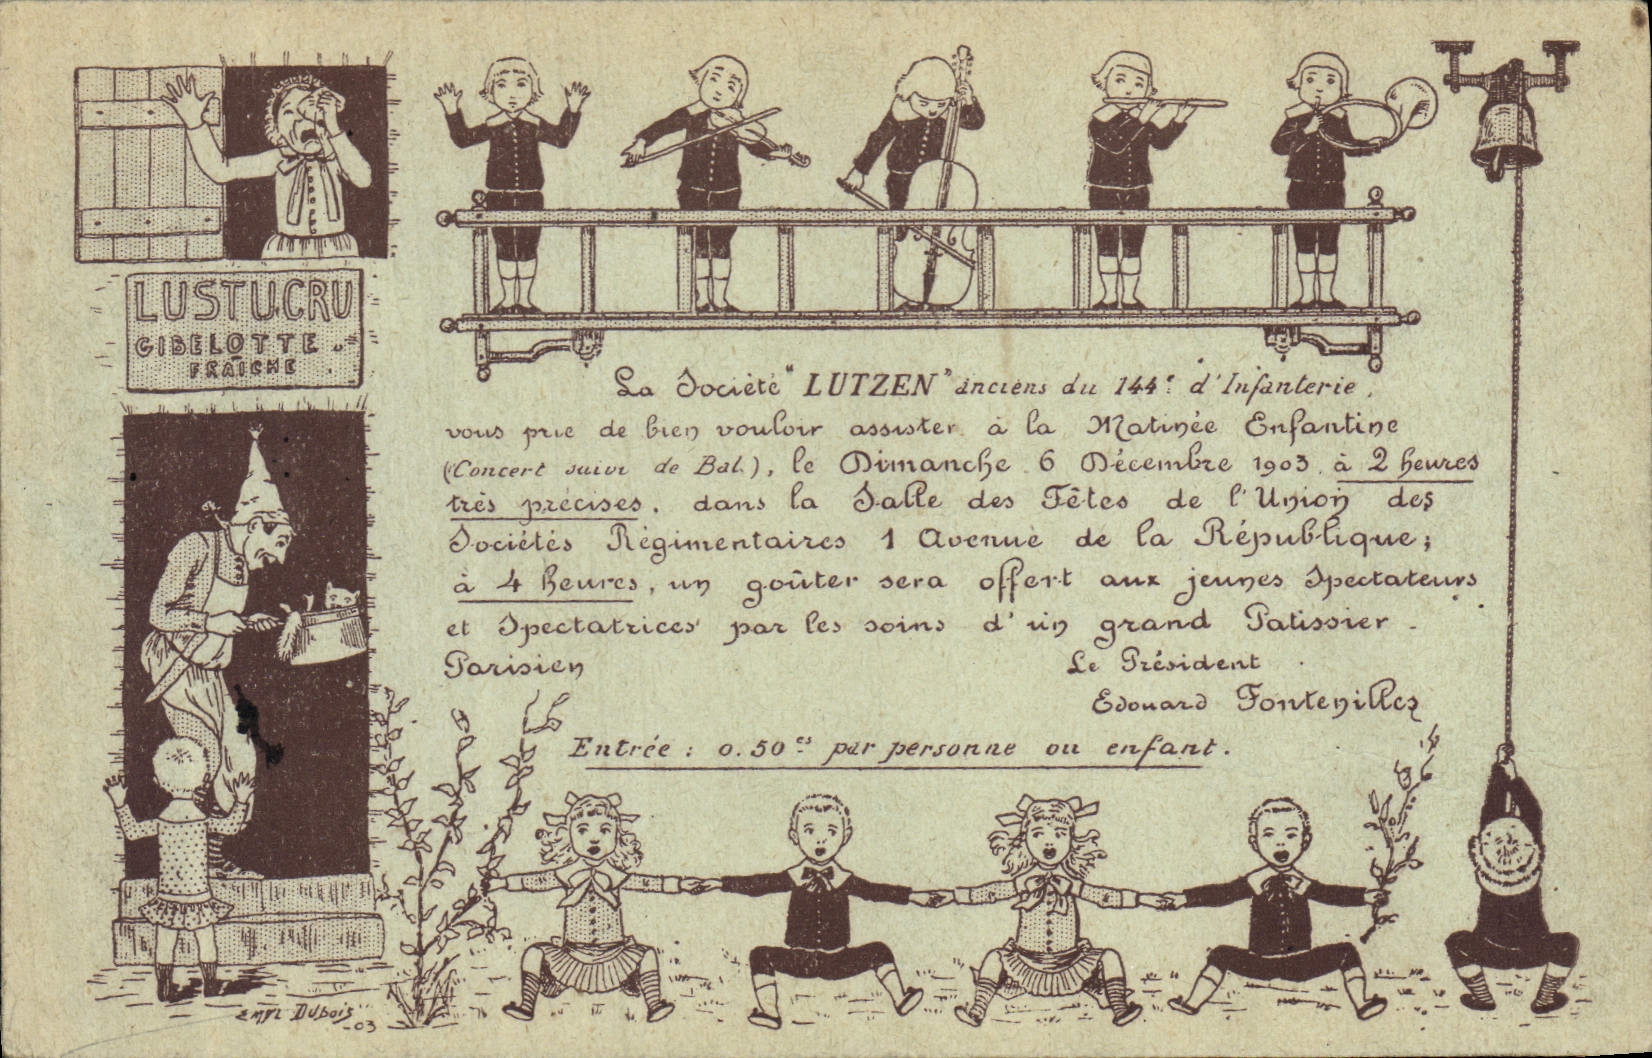 LUSTUCRU
GIBELOTTE
FRAÎCHE
La Société "LUTZEN" anciens du 144e d'Infanterie,
vous prie de bien vouloir assister à la Matinée Enfantine
(Concert suivi de Bal), le Dimanche 6 Décembre 1903 à 2 heures
très précises, dans la Salle des Fêtes de l'Union des
Sociétés Régimentaires 1 Avenue de la République;
à 4 heures, un goûter sera offert aux jeunes Spectateurs
et Spectatrices par les soins d'un grand Patissier
Parisien
Le Président
Edouard Fontenilles
Entrée : 0.50 cs par personne ou enfant.
Emyl Dubois
-03